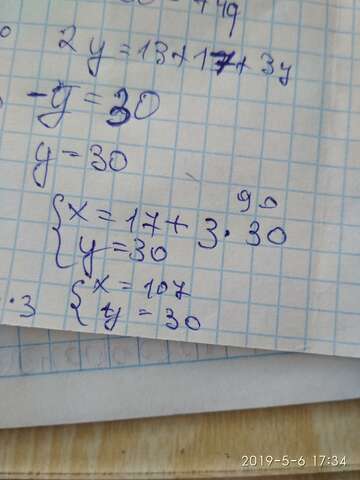 2y = 13 + 17 + 3y
-y = 30
y = 30
90
{ x = 17 + 3 · 30
y = 30
{ x = 107
y = 30
· 3
2019-5-6 17:34